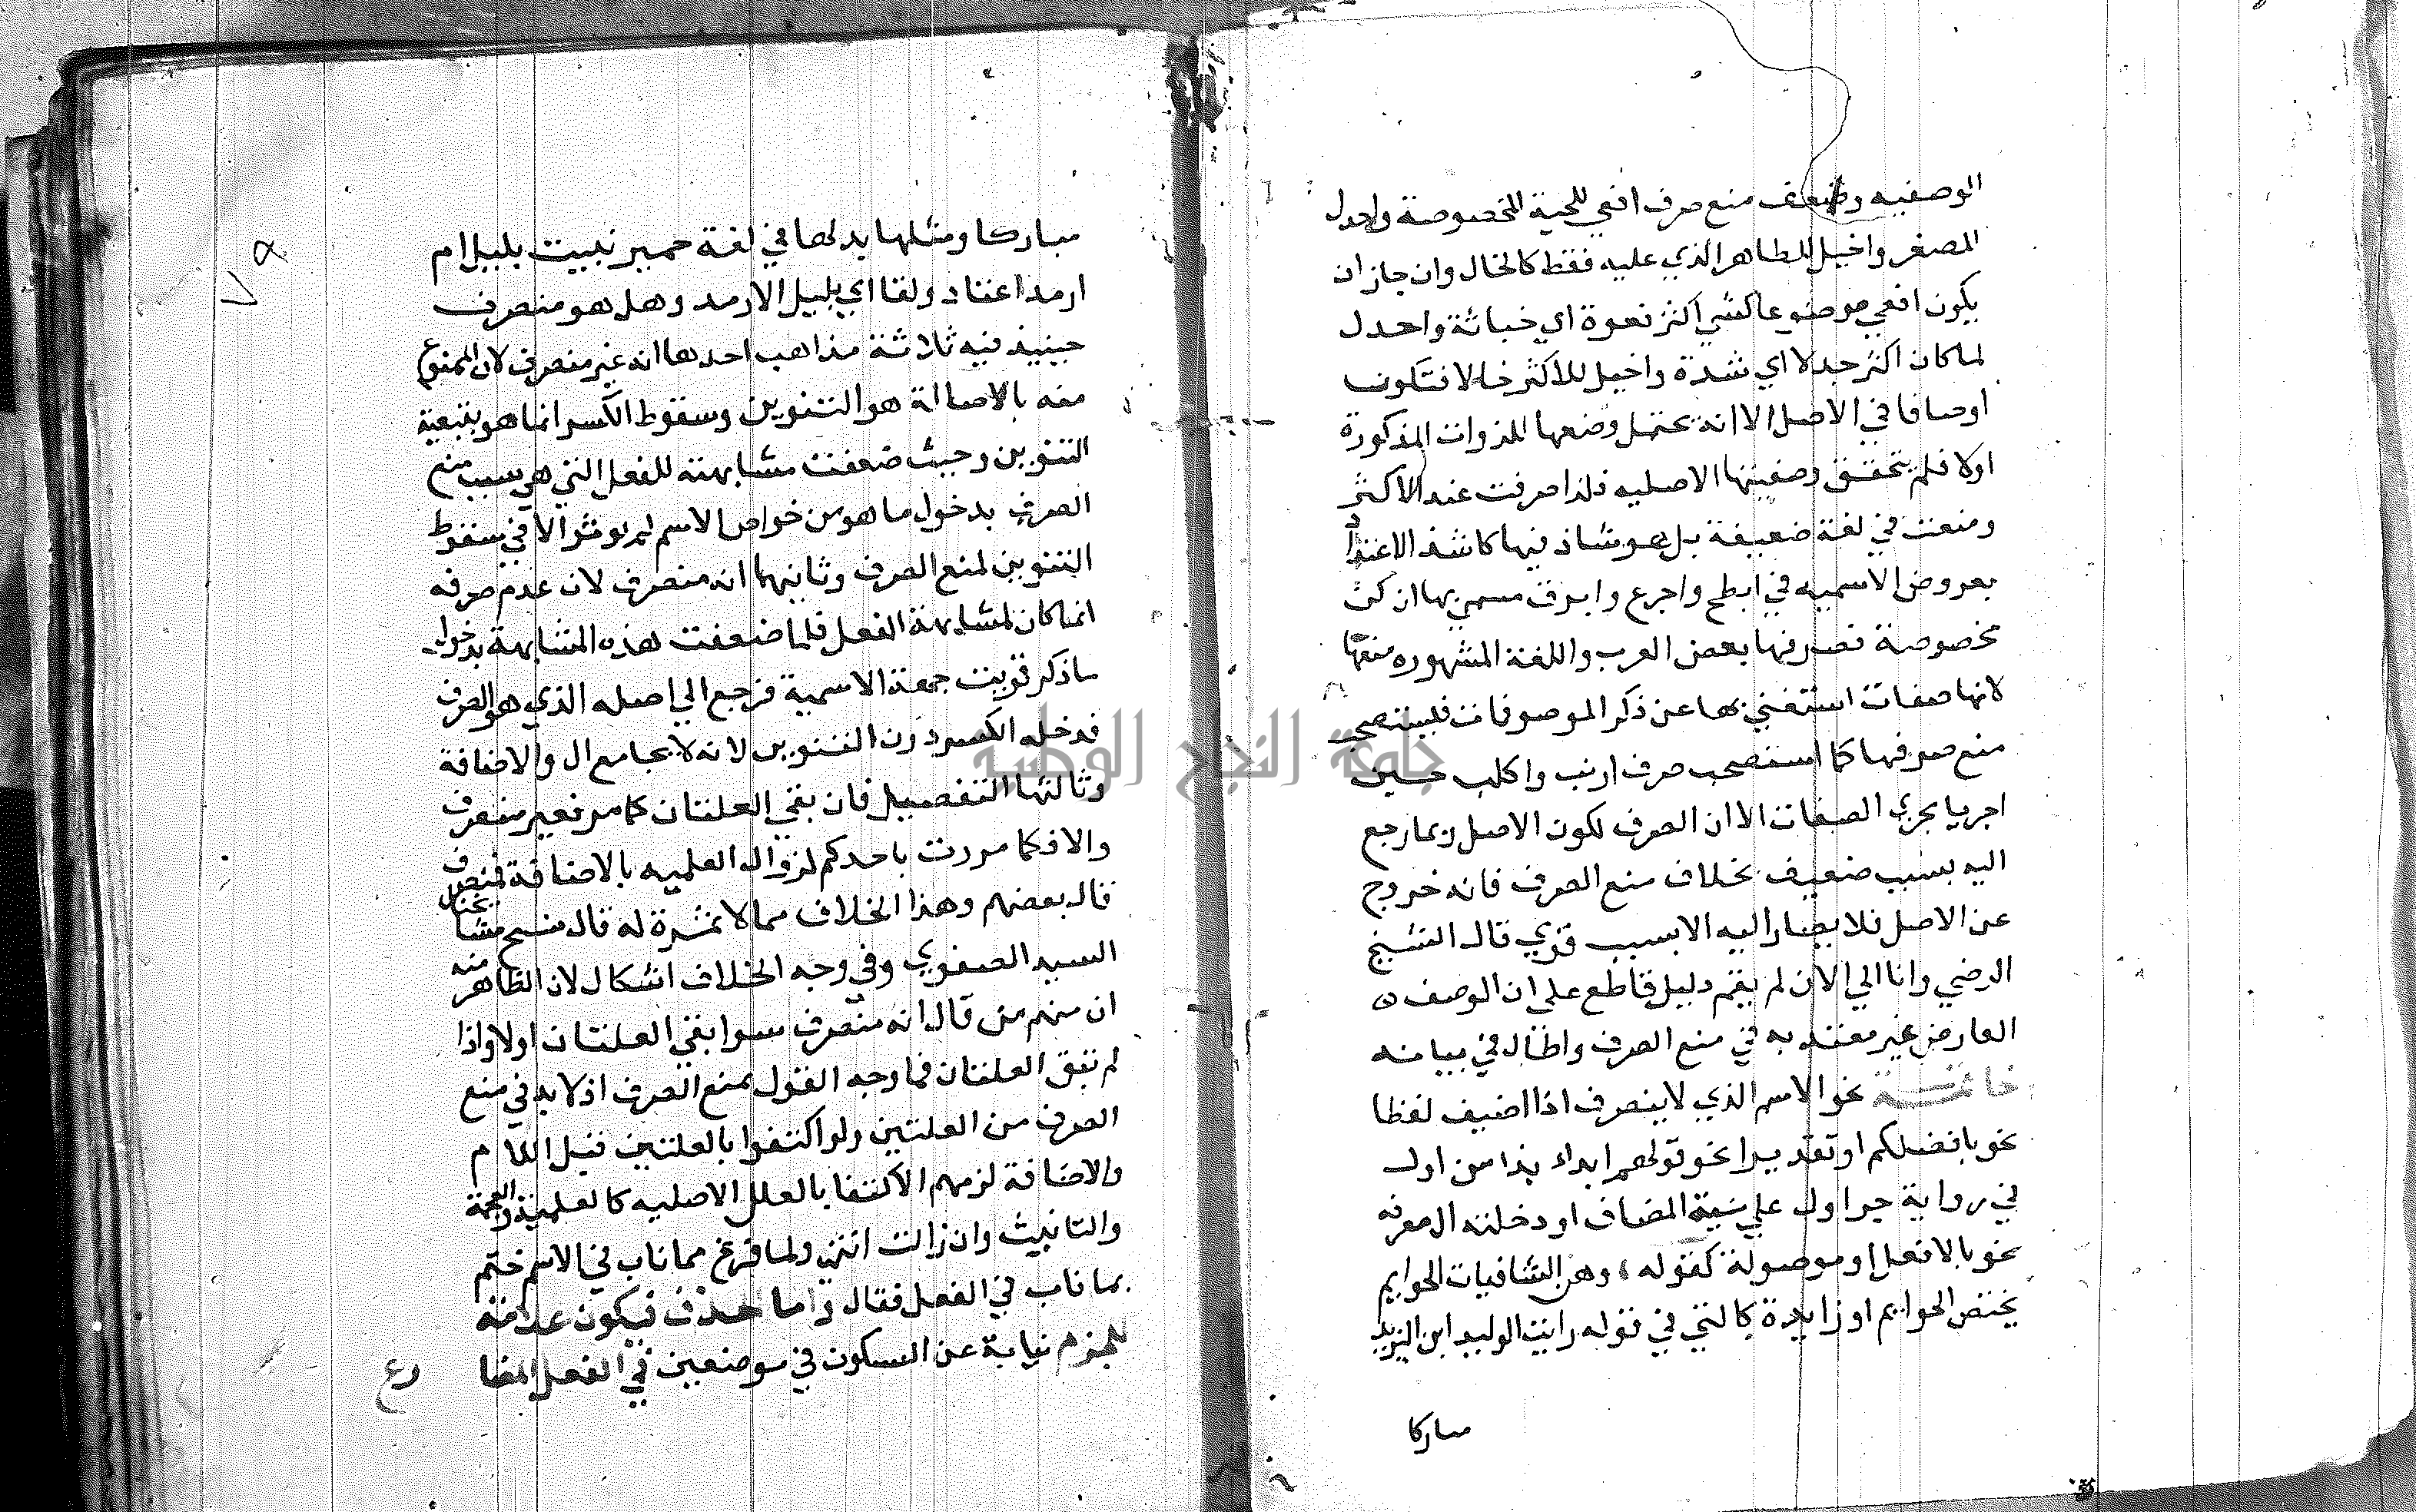 الوصفيه وضعف منع صرف افعي للحية المخصوصة واجدل
المصغر واخيل للطاهر الذي عليه فقط كالخال وان جاز ان
يكون افعي موضوعا لشي اكثر نعوة اي خباثة واجدل
لما كان اكثر جدلا اي شدة واخيل للاكثر خالا فتكون
اوصافا في الاصل الا انه يحتمل وضعها للذوات المذكورة
اولا فلم يتحقق وصفيتها الاصليه فلذا صرفت عند الاكثر
ومنعت في لغة ضعيفة بل هو شاذ فيها كما شذ الاعتداد
بعروض الاسميه في ابطح واجرع وابرق مسمي بها امكنة
مخصوصة فصرفها بعض العرب واللغة المشهوره منعها
لانها صفات استغني بها عن ذكر الموصوفات فيستصحب
منع صرفها كما استصحب صرف ارنب واكلب حسين
اجريا مجري الصفات الا ان الصرف لكون الاصل ربما رجع
اليه بسبب ضعيف بخلاف منع الصرف فانه خروج
عن الاصل فلا يصار اليه الا بسبب قوي قال الشيخ
الرضي وانا الي الان لم يقم دليل قاطع علي ان الوصف
العارض غير معتد به في منع الصرف واطال في بيانه
خاتمة نحو الاسم الذي لا ينصرف اذا اضيف لفظا
نحو بافضلكم او تقديرا نحو قولهم ابداء بذا من اول
في رواية جر اول علي نية المضاف او دخلته ال معرفه
نحو بالافعل او موصولة كقوله وهن الشافيات الحوايم
يختص الحوايم او زايدة كالتي في قوله رايت الوليد ابن اليزيد
مباركا
مباركا ومثلها بدلها في لغة حمير نبيت بليل ام
ارمد اعتاد ولقا اي بليل الارمد وهل هو منصرف
حينيذ فيه ثلاثة مذاهب احدها انه غير منصرف لان الممنوع
منه بالاصالة هو التنوين وسقوط الكسر انما هو بتبعية
التنوين وحيث ضعفت مشابهته للفعل التي هي سبب منع
الصرف بدخول ما هو من خواص الاسم لم يوثر الا في سقوط
التنوين لمنع الصرف وثانيها انه منصرف لان عدم صرفه
انما كان لمشابهة الفعل فلما ضعفت هذه المشابهة بدخول
ما ذكر قويت جهة الاسمية فرجع الي اصله الذي هو الصرف
فدخله الكسر دون التنوين لانه لا يجامع ال والاضافة
وثالثها التفصيل فان بقي العلتان كما مر فغير منصرف
والا فكما مررت باحمدكم لزوال العلميه بالاضافة فمنصرف
قال بعضهم وهذا الخلاف مما لا ثمرة له قال شيخ مشايخنا
السيد الصفوي وفي وجه الخلاف اشكال لان الظاهر منه
ان منهم من قال انه منصرف سوا بقي العلتان اولا واذا
لم تبق العلتان فما وجه القول بمنع الصرف اذ لا بد في منع
الصرف من العلتين ولو اكتفوا بالعلتين قبل اللام
والاضافة لزمهم الاكتفا بالعلل الاصليه كالعلمية والعجمة
والتانيث وان زالت انتهي ولما فرغ مما ناب في الاسم ختم
بما ناب في الفعل فقال واما الحذف فيكون علامة
للجزم نيابة عن السكون في موضعين في الفعل المضا
رع
٧٩
جامعة النجاح الوطنية